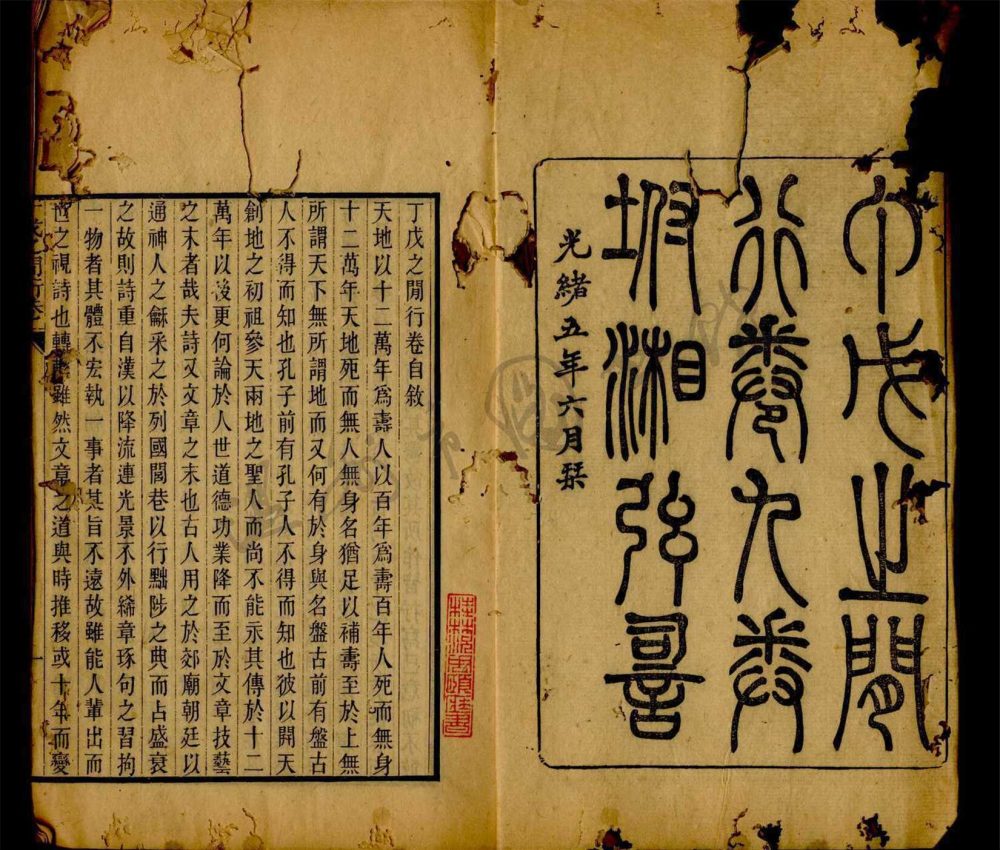 丁戊之閒
行卷九卷
坿湘弦䛐
光緒五年六月栞
丁戊之閒行卷自敘
天地以十二萬年爲壽人以百年爲壽百年人死而無身
十二萬年天地死而無人無身名猶足以補壽至於上無
所謂天下無所謂地而又何有於身與名盤古前有盤古
人不得而知也孔子前有孔子人不得而知也彼以開天
創地之初祖參天兩地之聖人而尚不能示其傳於十二
萬年以後更何論於人世道德功業降而至於文章技藝
之末者哉夫詩又文章之末也古人用之於郊廟朝廷以
通神人之龢采之於列國閭巷以行黜陟之典而占盛衰
之故則詩重自漢以降流連光景不外絺章琢句之習拘
一物者其體不宏執一事者其旨不遠故雖能人輩出而
世之視詩也轉輕雖然文章之道與時推移或十年而變